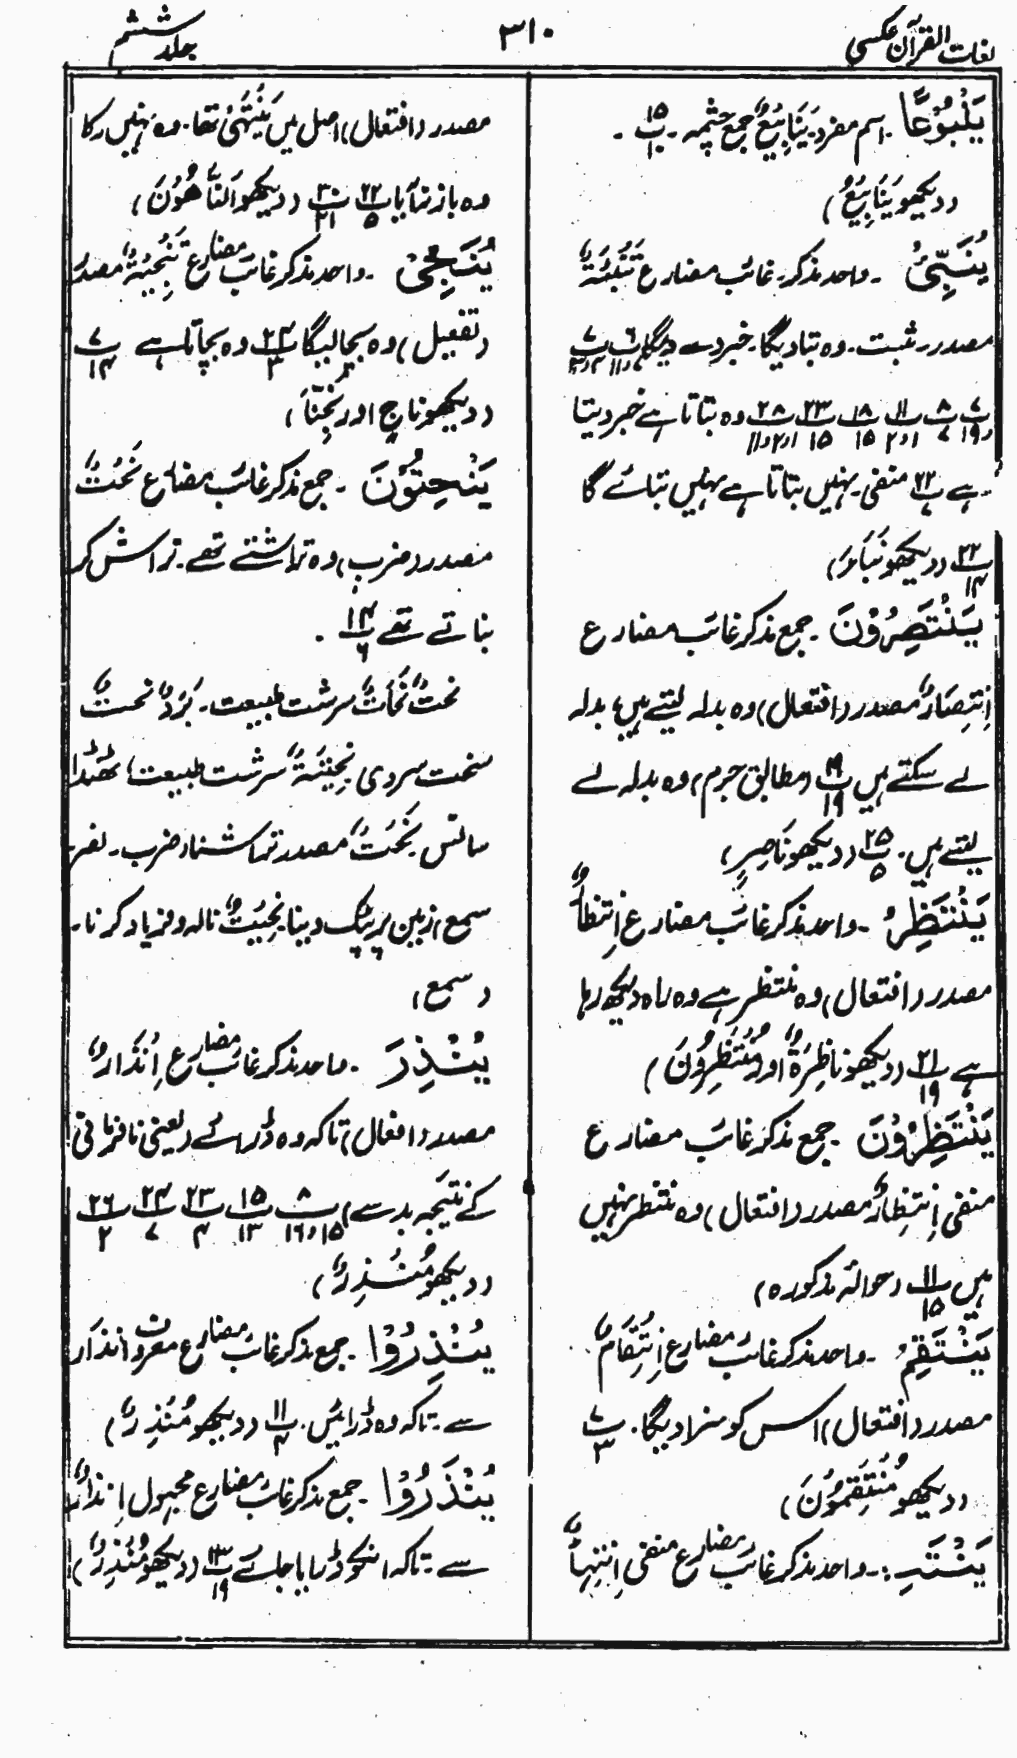 لغات القرآن عکسی
۳۱۰
جلد ششم
یَنْبُوْعًا ۔ اسم مفرد۔ یَنَابِیْعُ جمع چشمہ ۔ پ ۱۵ ۱۰ ۔
(دیکھو یَنَابِیْعُ)
یُنَبِّئُ ۔ واحد مذکر۔ غائب مضارع تَنْبِئَۃٌ
مصدر۔ مثبت۔ وہ بتا دیگا۔ خبر دے دیگا
وہ بتاتا ہے خبر دیتا
ہے پ ۲۲ منفی۔ نہیں بتاتا ہے نہیں بتائے گا
۲۲ ۱۴ (دیکھو نَبَأَ)
یَنْتَصِرُوْنَ ۔ جمع مذکر غائب مضارع
اِنْتِصَارٌ مصدر (افتعال) وہ بدلہ لیتے ہیں، بدلہ
لے سکتے ہیں پ ۱۹ (مطابق جرم) وہ بدلہ لے
لیتے ہیں۔ پ ۲۵ ۵ (دیکھو نَاصِرٍ)
یَنْتَظِرُ ۔ واحد مذکر غائب مضارع اِنْتِظَارٌ
مصدر (افتعال) وہ منتظر ہے وہ راہ دیکھ رہا
ہے پ ۲۱ ۱۹ (دیکھو نَاظِرَۃٌ اور مُنْتَظِرُوْنَ)
یَنْتَظِرُوْنَ ۔ جمع مذکر غائب مضارع
منفی اِنْتِظَارٌ مصدر (افتعال) وہ منتظر نہیں
ہیں پ ۱۱ ۱۵ (حوالہ مذکورہ)
یَنْتَقِمُ ۔ واحد مذکر غائب مضارع اِنْتِقَامٌ
مصدر (افتعال) اس کو سزا دیگا۔ پ ۷ ۳
(دیکھو مُنْتَقِمُوْنَ)
یَنْتَہِ:۔ واحد مذکر غائب مضارع منفی اِنْتِہَاءٌ
مصدر (افتعال) اصل میں یَنْتَہِیْ تھا۔ وہ نہیں رکا
وہ باز نہ آیا پ ۲۲ ۵ پ ۳۰ ۲۱ (دیکھو اَلنَّاھُوْنَ)
یُنَجِّیْ ۔ واحد مذکر غائب مضارع تَنْجِیَۃٌ مصدر
(تفعیل) وہ بچا لیگا پ ۲۴ ۳ وہ بچاتا ہے پ ۷ ۱۴
(دیکھو نَاجٍ اور نَجِّنَا)
یَنْحِتُوْنَ ۔ جمع مذکر غائب مضارع نَحْتٌ
مصدر (ضرب) وہ تراشتے تھے۔ تراش کر
بناتے تھے پ ۱۴ ۶ ۔
نَحْتٌ نُحَاتٌ سرشت طبیعت۔ بَرْدٌ نَحْتٌ
سخت سردی نَحِیْتَۃٌ سرشت طبیعت، ٹھنڈا
سانس۔ نَحْتٌ مصدر تراشنا (ضرب۔ نصر
سمع) زمین پر پٹک دینا نَحِیْتٌ نالہ و فریاد کرنا۔
(سمع)
یُنْذِرَ ۔ واحد مذکر غائب مضارع اِنْذَارٌ
مصدر (افعال) تاکہ وہ ڈرائے (یعنی نافرمانی
کے نتیجہ بد سے) ۸ ۱۵ و ۱۶ ۱۵ ۱۳ ۲۳ ۴ ۲۴ ۷ ۲۶ ۲
(دیکھو مُنْذِرٌ)
یُنْذِرُوْا ۔ جمع مذکر غائب مضارع معروف انذار
سے۔ تاکہ وہ ڈرائیں۔ پ ۱۱ ۴ (دیکھو مُنْذِرٌ)
یُنْذَرُوْا ۔ جمع مذکر غائب مضارع مجہول اِنْذَارٌ
سے۔ تاکہ انکو ڈرایا جائے پ ۱۳ ۱۹ (دیکھو مُنْذِرٌ)